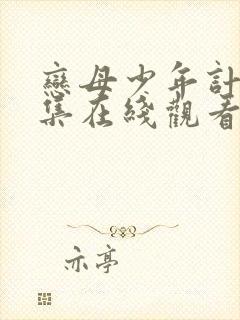 戀母少年計
集在綫觀看
亦亭